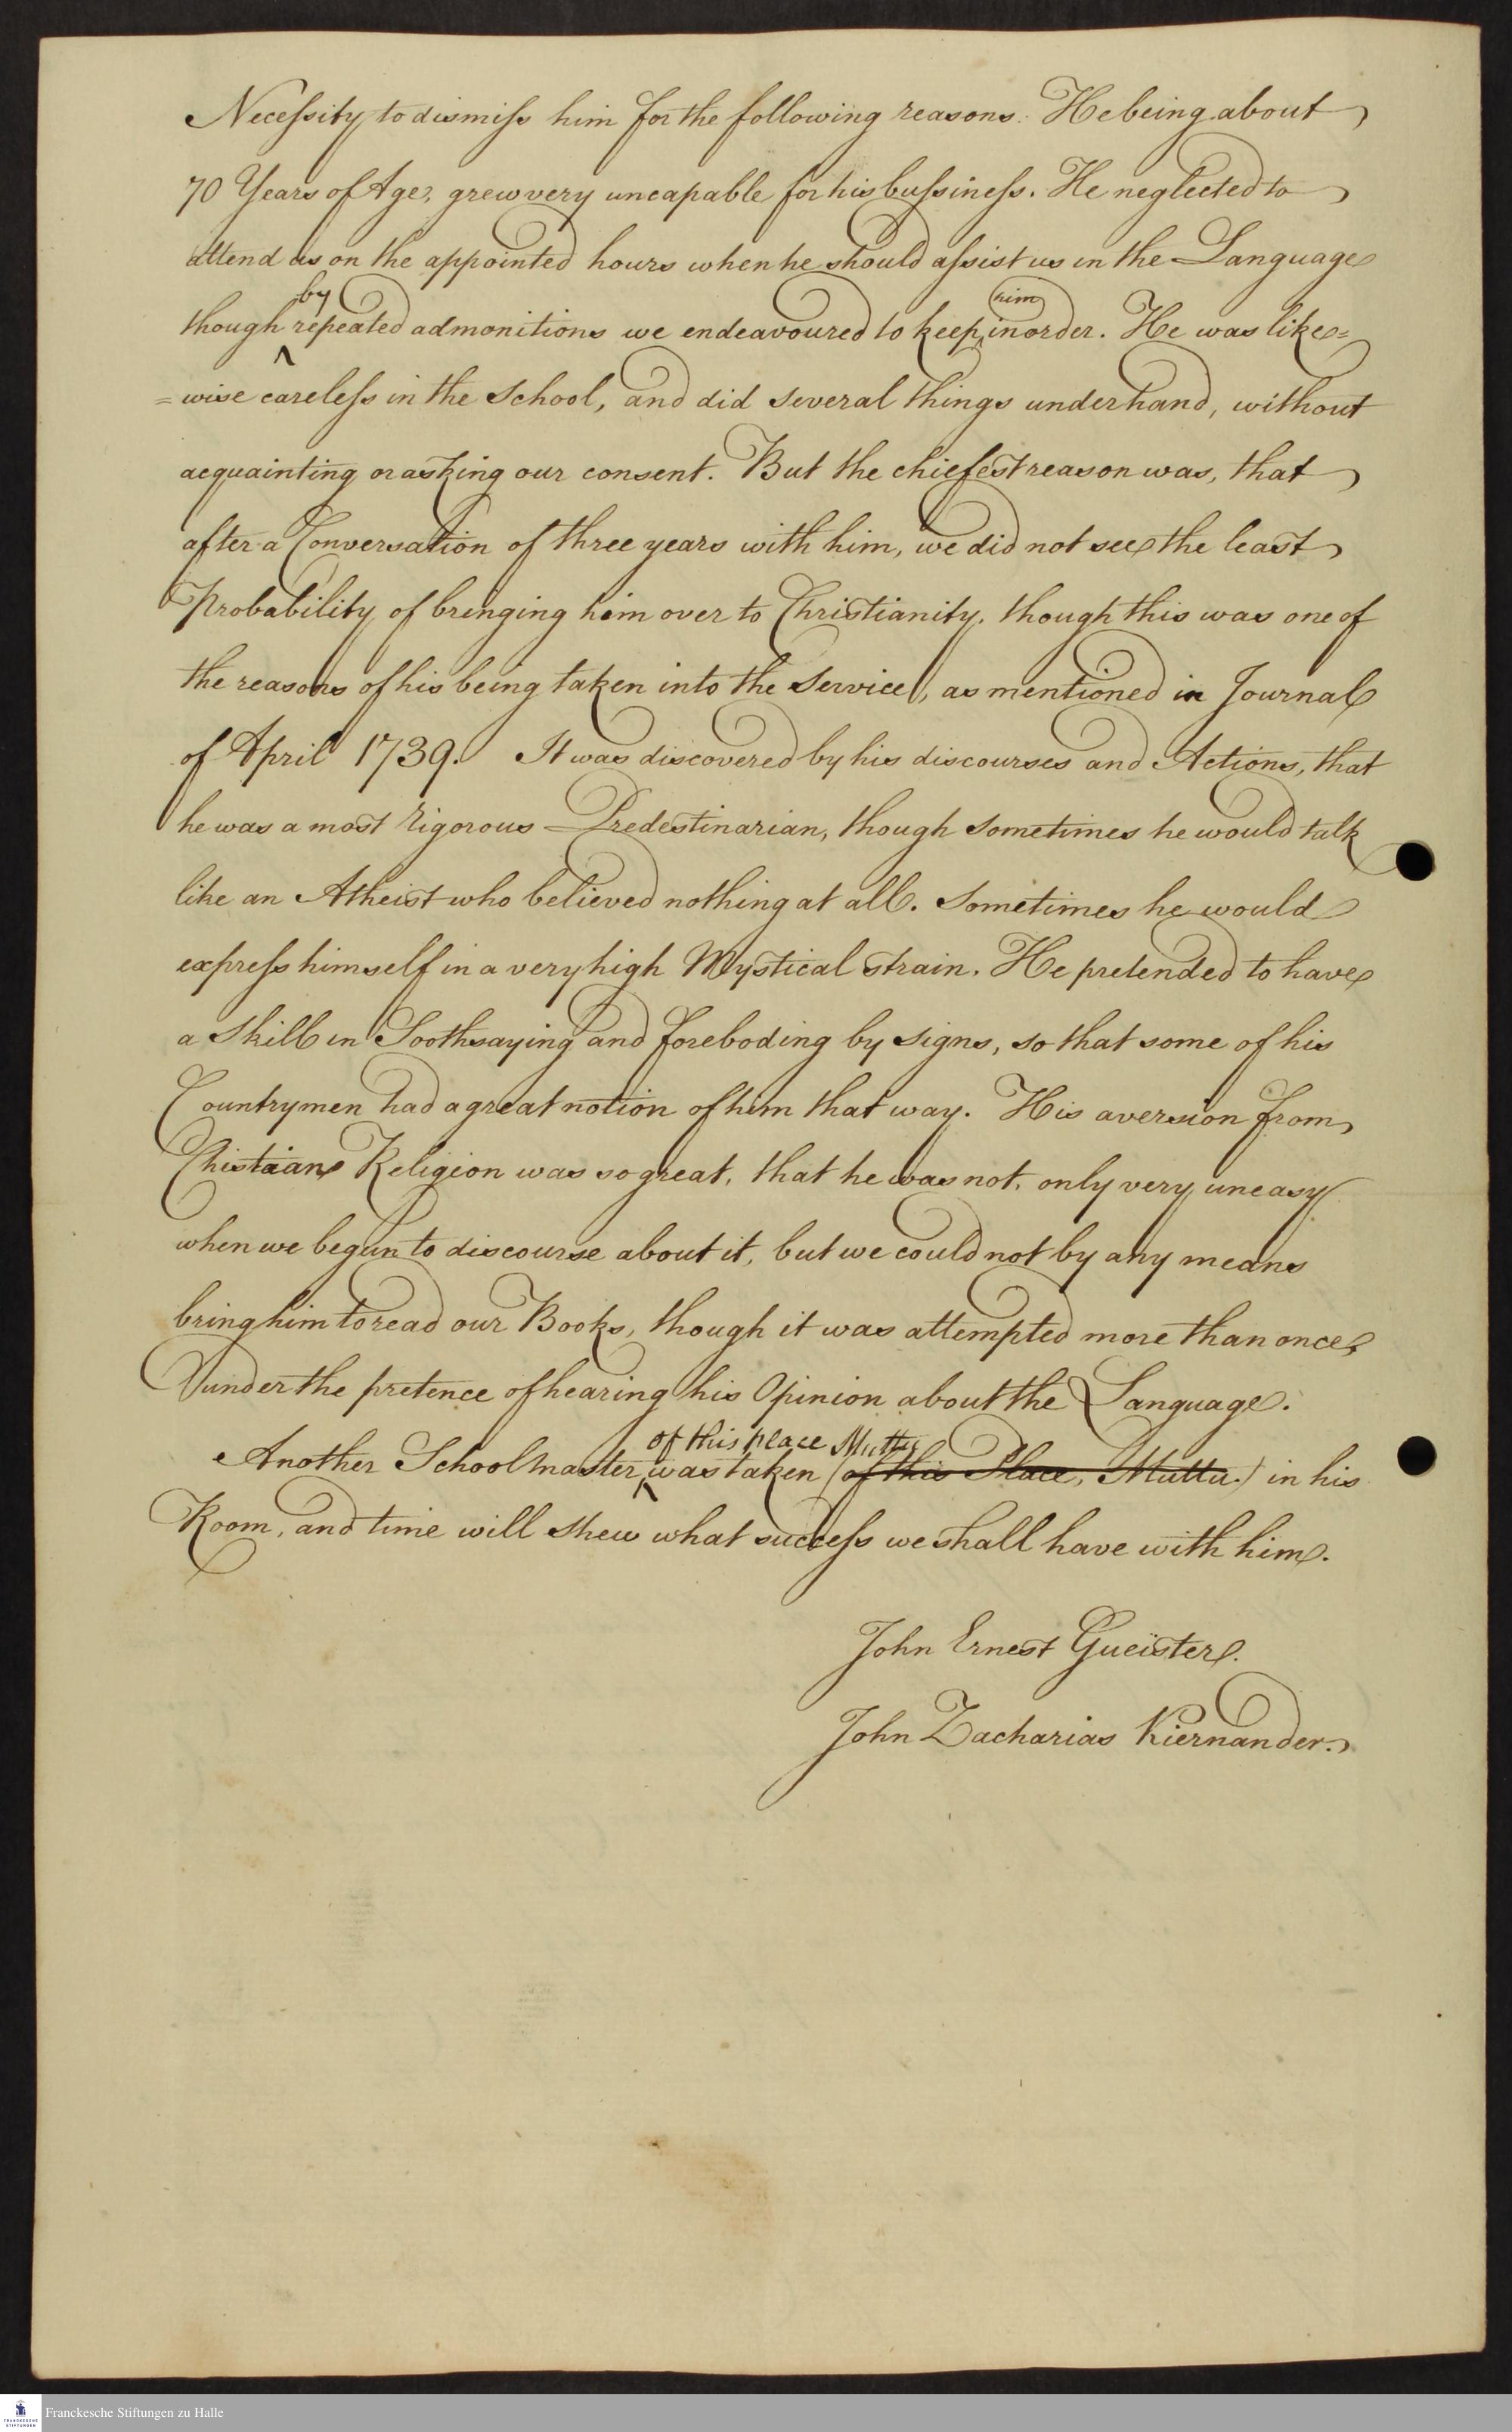 Necessity to dismiss him for the following reasons. He being about
70 Years of Age, grew very uncapable for his bussiness. He neglected to
attend us on the appointed hours when he should assist us in the Language
by him
though repeated admonitions we endeavoured to keep in order. He was like=
=wise careless in the School, and did several things underhand, without
acquainting or asking our consent. But the chiefest reason was, that
after a Conversation of three years with him, we did not see the least
Probability of bringing him over to Christianity, though this was one of
the reasons of his being taken into the Service, as mentioned in Journal
of April 1739. It was discovered by his discourses and Actions, that
he was a most rigorous Predestinarian, though sometimes he would talk
like an Atheist who believed nothing at all. Sometimes he would
express himself in a very high Mystical strain. He pretended to have
a Skill in Soothsaying and foreboding by signs, so that some of his
Countrymen had a great notion of him that way. His aversion from
Chistaian Religion was so great, that he was not, only very uneasy
when we begun to discourse about it, but we could not by any means
bring him to read our Books, though it was attempted more than once,
under the pretence of hearing his Opinion about the Language.
of this place Muttu
Another Schoolmaster, was taken (of this Place, Muttu.) in his
Room, and time will shew what success we shall have with him.
John Ernest Gueister.
John Zacharias Kiernander.
FRANCKESCHE STIFTUNGEN
Franckesche Stiftungen zu Halle